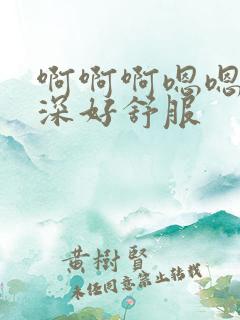 啊啊啊嗯嗯
深好舒服
黄樹賢
未经同意禁止转载